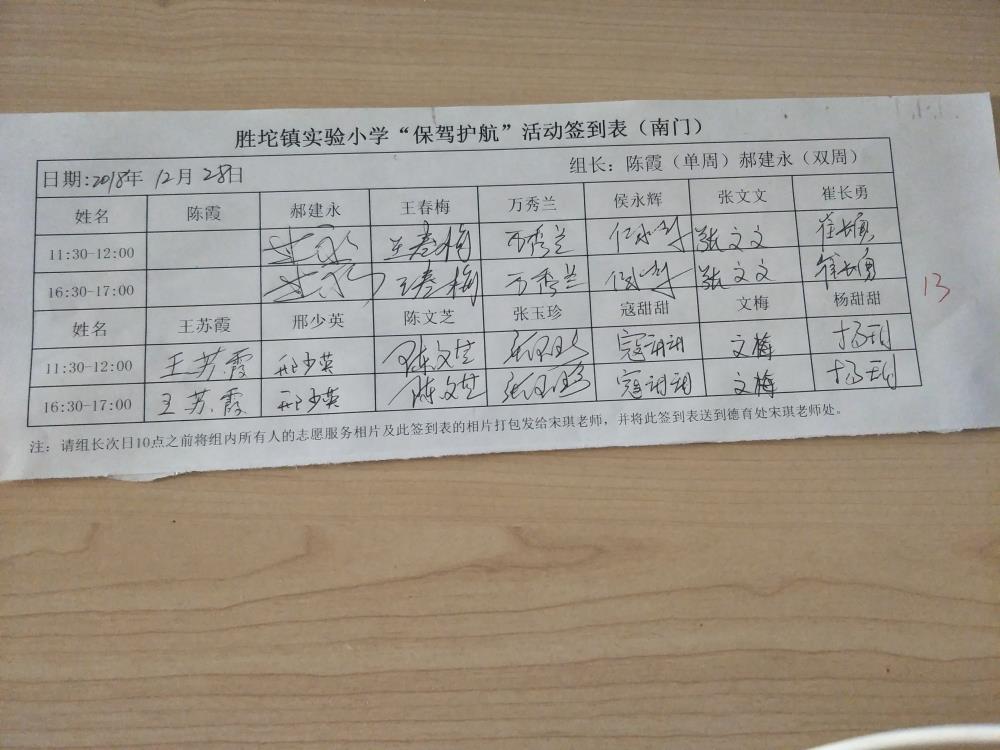 胜坨镇实验小学“保驾护航”活动签到表（南门）
日期:2018年 12月 28日 组长：陈霞（单周）郝建永（双周）
姓名 陈霞 郝建永 王春梅 万秀兰 侯永辉 张文文 崔长勇
11:30-12:00 王春梅 万秀兰 张文文 崔长勇
16:30-17:00 王春梅 万秀兰 张文文 崔长勇
13
姓名 王苏霞 邢少英 陈文芝 张玉珍 寇甜甜 文梅 杨甜甜
11:30-12:00 王苏霞 邢少英 陈文芝 寇甜甜 文梅
16:30-17:00 王苏霞 邢少英 陈文芝 寇甜甜 文梅
注：请组长次日10点之前将组内所有人的志愿服务相片及此签到表的相片打包发给宋琪老师，并将此签到表送到德育处宋琪老师处。